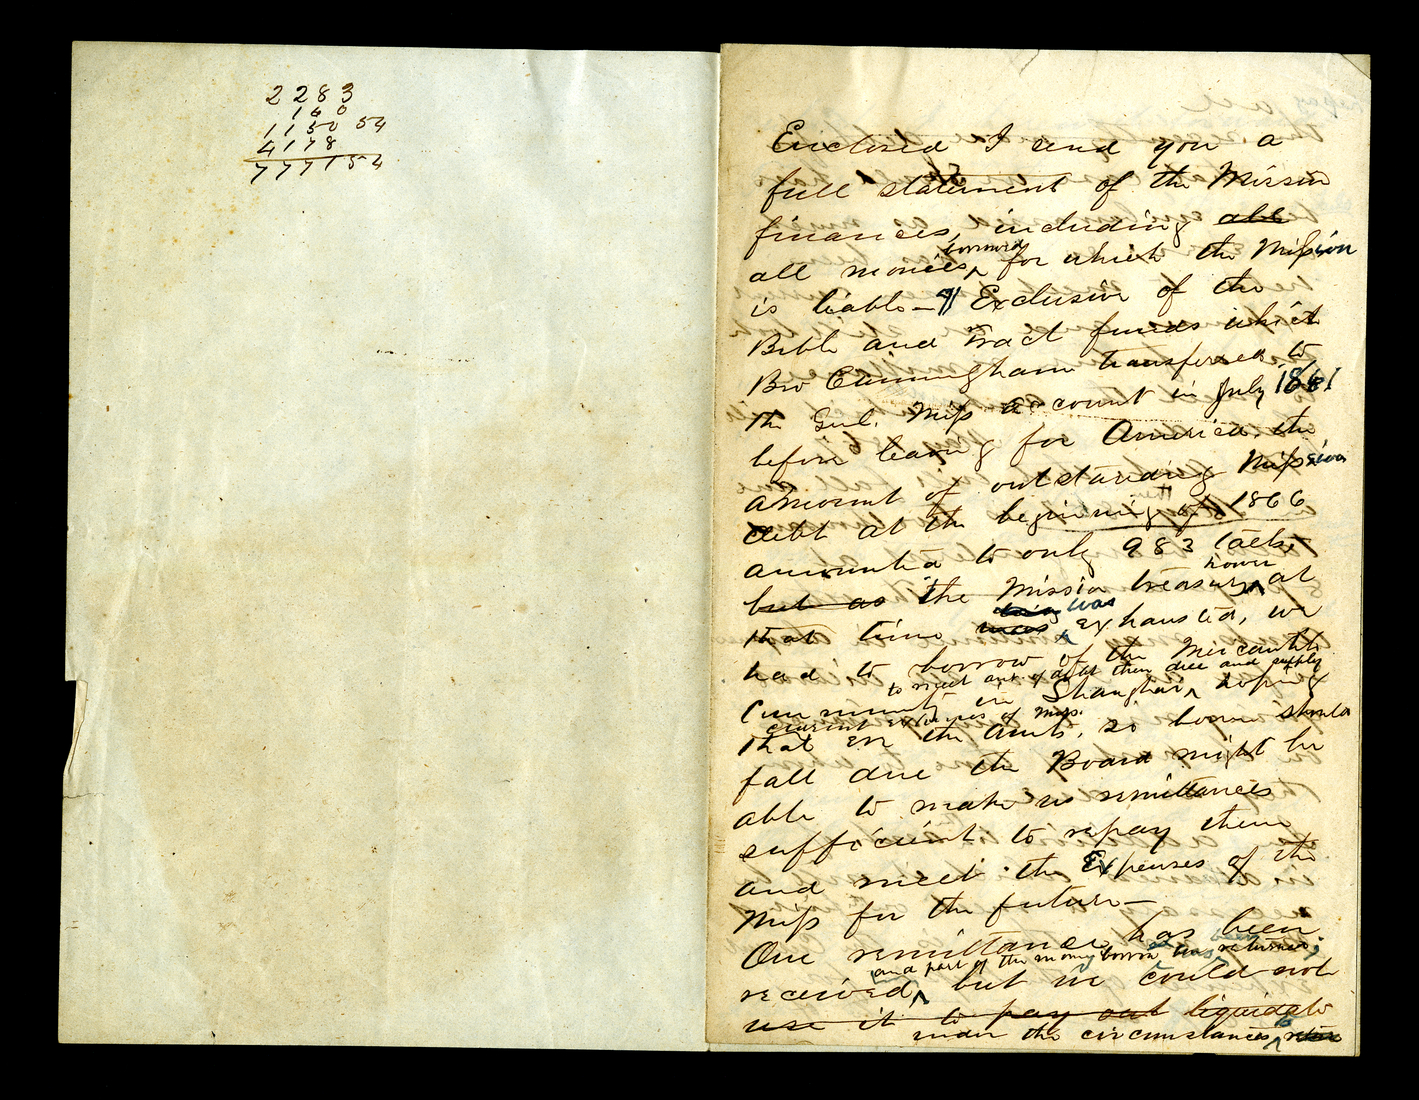 2283
160
1150 54
4178
7771 54
Enclosed I send you a
full statement of the Mission
finances, including all
borrowed
all monies ^ for which the Mission
is liable – Exclusive of the
Bible and Tract funds which
Bro Cunningham transfered to
the Genl. Miss account in July 1861
before leaving for America, the
amount of outstanding Mission
debt at the begining of 1866
amounted to only 983 taels,
but as the Mission treasury ^ at
that time was exhausted, we
had to borrow of the Mercantile
to meet out of debt then due and supply
community in Shanghai ^ hoping
current expenses of Miss.
that ere the amts. so borrd should
fall due the Board might be
able to make us remittances
sufficient to repay them
and meet the Expenses of the
Miss for the future –
One remittance has been
and part of the money borrow has been returned;
received, ^ but we could not
use it to pay out liquidate
under the circumstances, ^